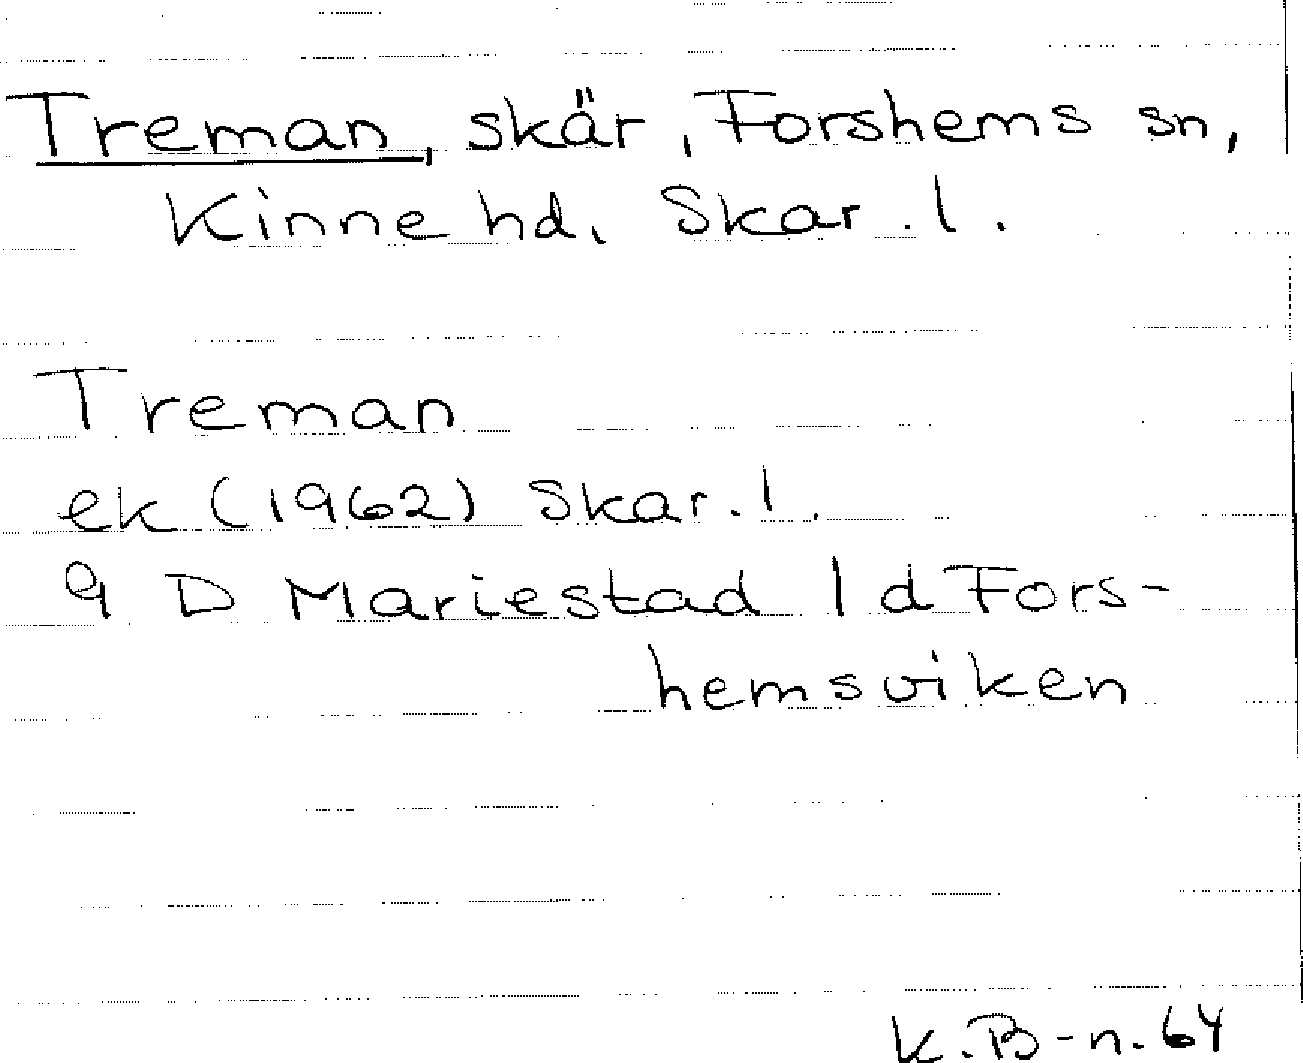 Treman, skär, Forshems sn,
Kinne hd, Skar. l.
Treman
ek (1962) Skar. l.
9 D Mariestad 1 d Fors-
hemsviken
K. B-n. 64